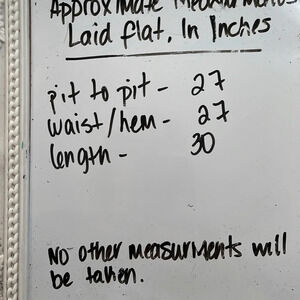 Approximate Measurments
Laid flat, In Inches
pit to pit - 27
waist/hem - 27
length - 30
No other measurments will
be taken.